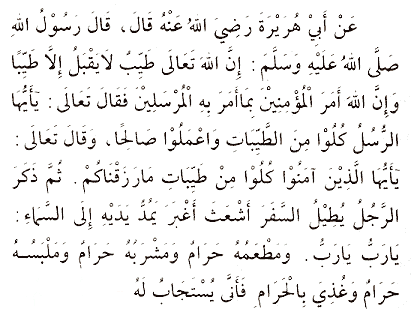 عَنْ أَبِيْ هُرَيْرَةَ رَضِيَ اللهُ عَنْهُ قَالَ، قَالَ رَسُوْلُ اللهِ
صَلَّى اللهُ عَلَيْهِ وَسَلَّمَ : إِنَّ اللهَ تَعَالَى طَيِّبٌ لاَيَقْبَلُ إِلاَّ طَيِّبًا
وَإِنَّ اللهَ أَمَرَ الْمُؤْمِنِيْنَ بِمَاأَمَرَ بِهِ الْمُرْسَلِيْنَ فَقَالَ تَعَالَى : يَأَيُّهَا
الرُّسُلُ كُلُوْا مِنَ الطَّيِّبَاتِ وَاعْمَلُوْا صَالِحًا، وَقَالَ تَعَالَى :
يَأَيُّهَا الَّذِيْنَ آمَنُوْا كُلُوْا مِنْ طَيِّبَاتِ مَارَزَقْنَاكُمْ . ثُمَّ ذَكَرَ
الرَّجُلُ يُطِيْلُ السَّفَرَ أَشْعَثَ أَغْبَرَ يَمُدُّ يَدَيْهِ إِلَى السَّمَاءِ :
يَارَبُّ يَارَبُّ . وَمَطْعَمُهُ حَرَامٌ وَمَشْرَبُهُ حَرَامٌ وَمَلْبَسُهُ
حَرَامٌ وَغُذِيَ بِالْحَرَامِ فَأَنَّى يُسْتَجَابُ لَهُ